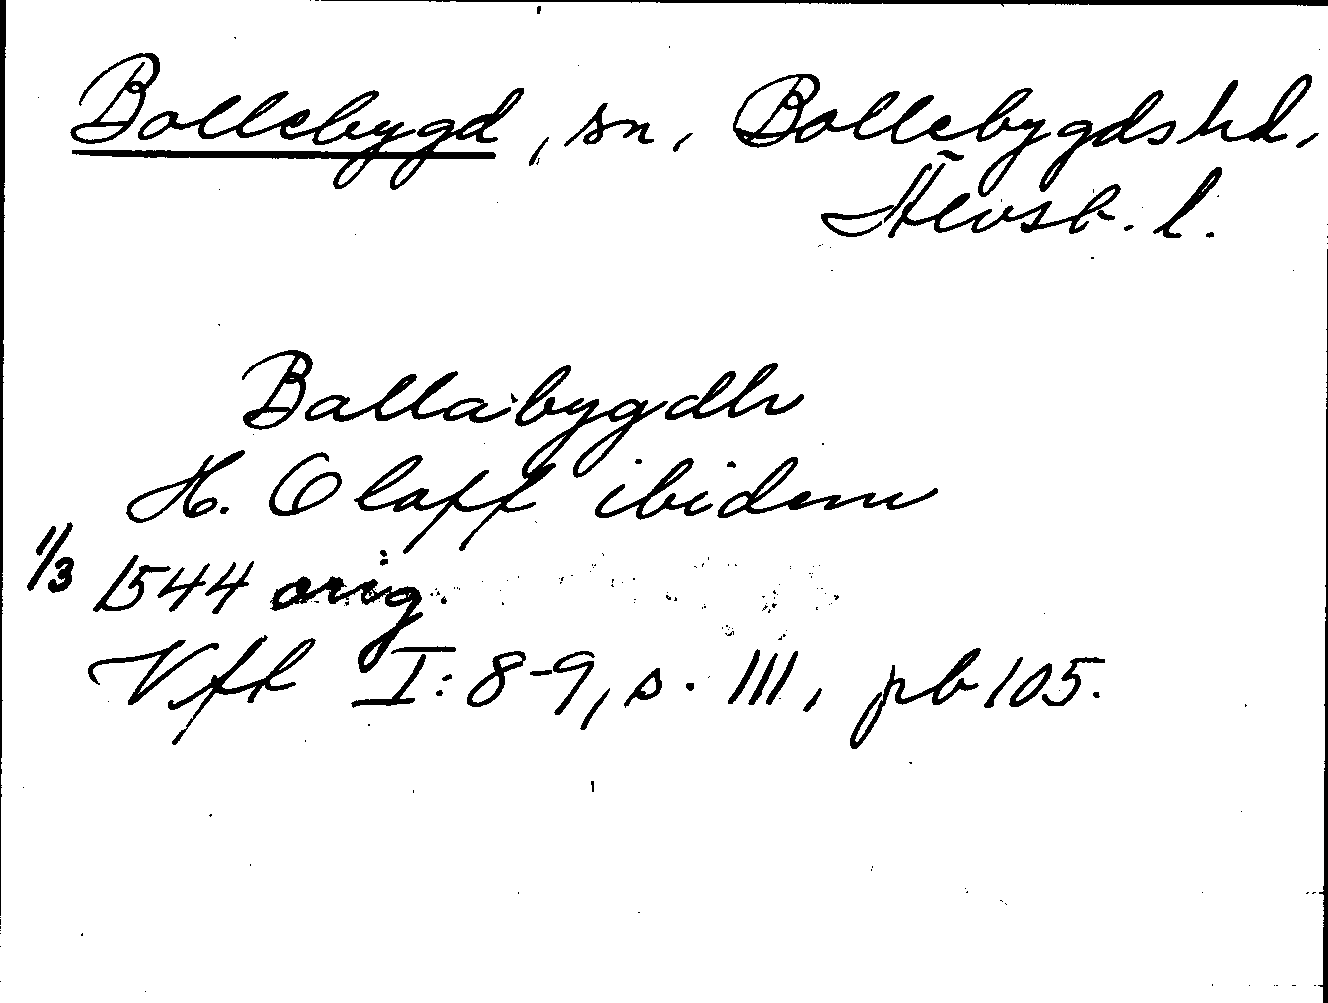 Bollebygd, sn, Bollebygds hd,
Älvsb. l.
Ballabygdh
H. Olaff ibidem
1/3 1544 orig.
Vff I: 8-9, s. 111, pb 105.